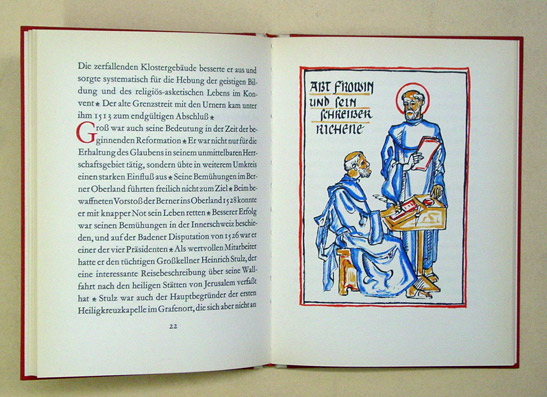 Die zerfallenden Klostergebäude besserte er aus und
sorgte systematisch für die Hebung der geistigen Bil-
dung und des religiös-asketischen Lebens im Kon-
vent * Der alte Grenzstreit mit den Urnern kam unter
ihm 1513 zum endgültigen Abschluß *
Groß war auch seine Bedeutung in der Zeit der be-
ginnenden Reformation * Er war nicht nur für die
Erhaltung des Glaubens in seinem unmittelbaren Herr-
schaftsgebiet tätig, sondern übte in weiterem Umkreis
einen starken Einfluß aus * Seine Bemühungen im Ber-
ner Oberland führten freilich nicht zum Ziel * Beim be-
waffneten Vorstoß der Berner ins Oberland 1528 konnte
er mit knapper Not sein Leben retten * Besserer Erfolg
war seinen Bemühungen in der Innerschweiz beschie-
den, und auf der Badener Disputation von 1526 war er
einer der vier Präsidenten * Als wertvollen Mitarbeiter
hatte er den tüchtigen Großkellner Heinrich Stulz, der
eine interessante Reisebeschreibung über seine Wall-
fahrt nach den heiligen Stätten von Jerusalem verfaßt
hat * Stulz war auch der Hauptbegründer der ersten
Heiligkreuzkapelle im Grafenort, die sich aber nicht an
22
ABT FROWIN
UND SEIN
SCHREIBER
RICHENE